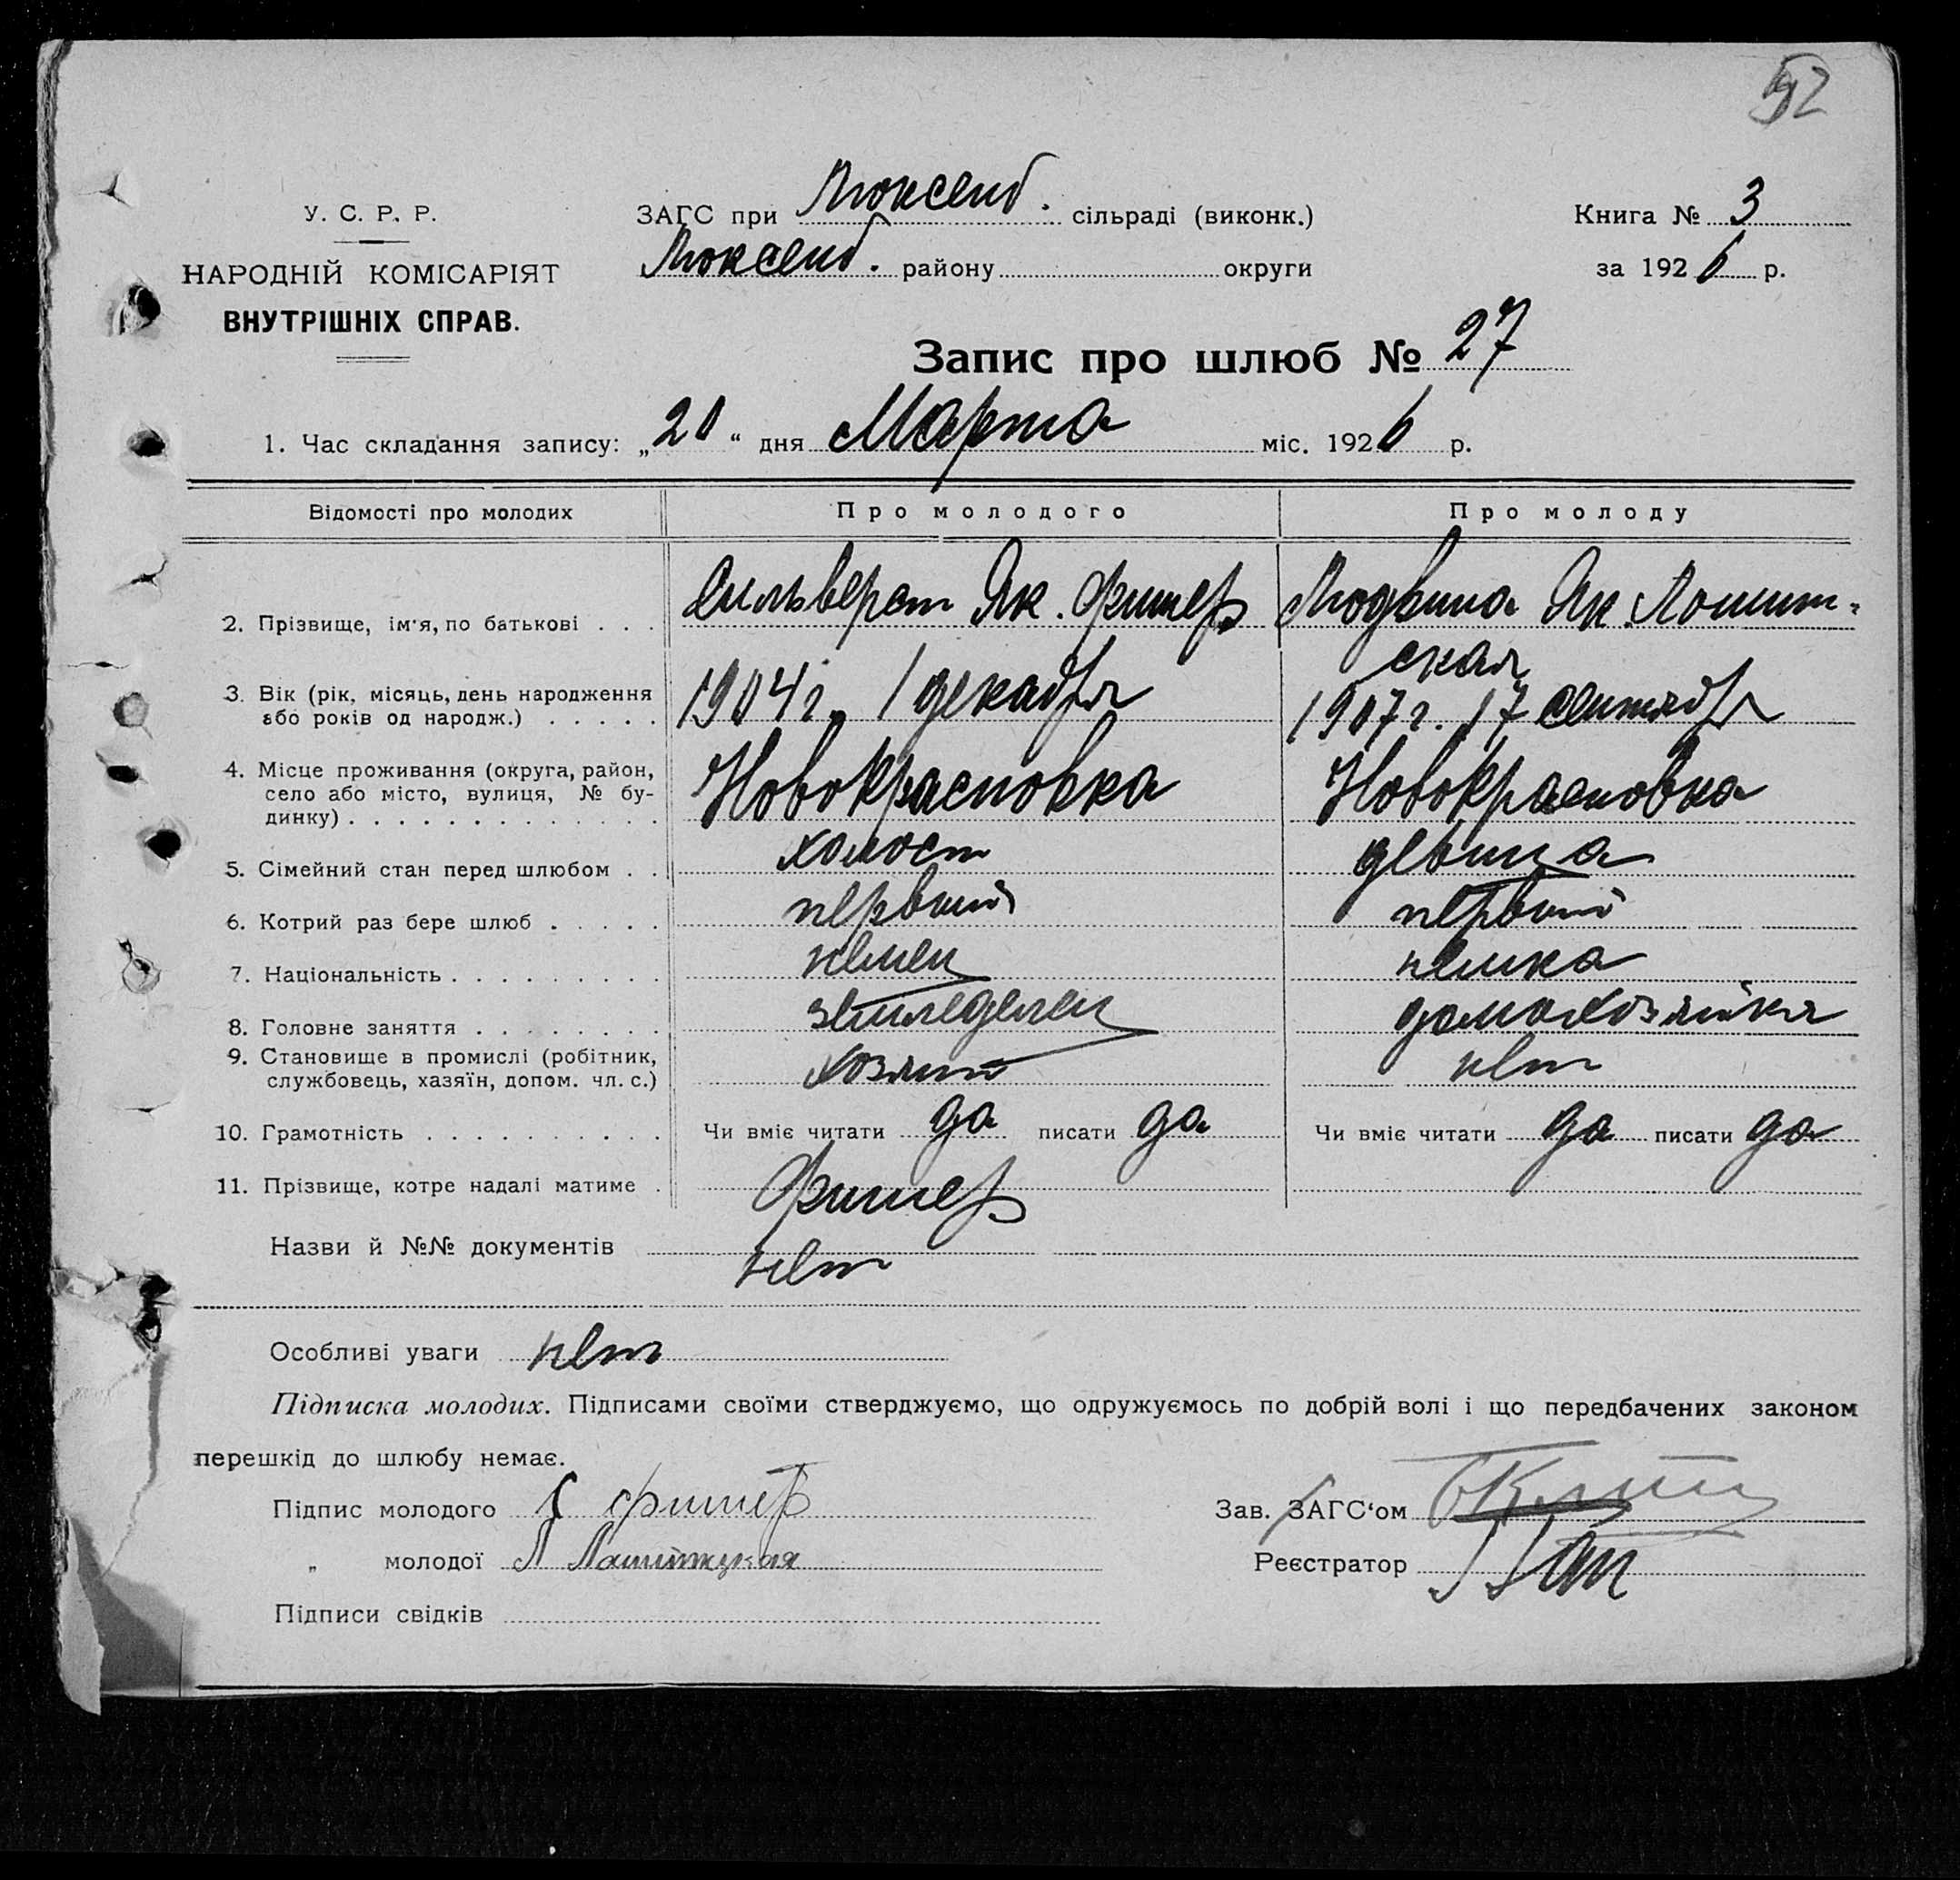 52
У. С. Р. Р.
НАРОДНІЙ КОМІСАРІЯТ
ВНУТРІШНІХ СПРАВ.
ЗАГС при Люксемб. сільраді (виконк.)
Люксемб. району округи
Книга № 3
за 1926 р.
Запис про шлюб № 27
1. Час складання запису: „20“ дня Марта міс. 1926 р.
Відомості про молодих Про молодого Про молоду
2. Прізвище, ім'я, по батькові . . . Сильверст Як. Фишер Людвина Як. Лошит-
ская
3. Вік (рік, місяць, день народження
або років од народж.) . . . . . 1904 г. 1 декабря 1907 г. 17 сентября
4. Місце проживання (округа, район,
село або місто, вулиця, № бу-
динку) . . . . . . . . . . . . . Новокрасновка Новокрасновка
5. Сімейний стан перед шлюбом . . холост девица
6. Котрий раз бере шлюб . . . . . первый первый
7. Національність . . . . . . . . . немец немка
8. Головне заняття . . . . . . . . земледелец домохозяйка
9. Становище в промислі (робітник,
службовець, хазяїн, допом. чл. с.) хозяин нет
10. Грамотність . . . . . . . . . . Чи вміє читати да писати да Чи вміє читати да писати да
11. Прізвище, котре надалі матиме . Фишер
Назви й №№ документів нет
Особливі уваги нет
Підписка молодих. Підписами своїми стверджуємо, що одружуємось по добрій волі і що передбачених законом
перешкід до шлюбу немає.
Підпис молодого С Фишер
„ молодої Л Лашитцкая
Підписи свідків
Зав. ЗАГС‘ом
Реєстратор